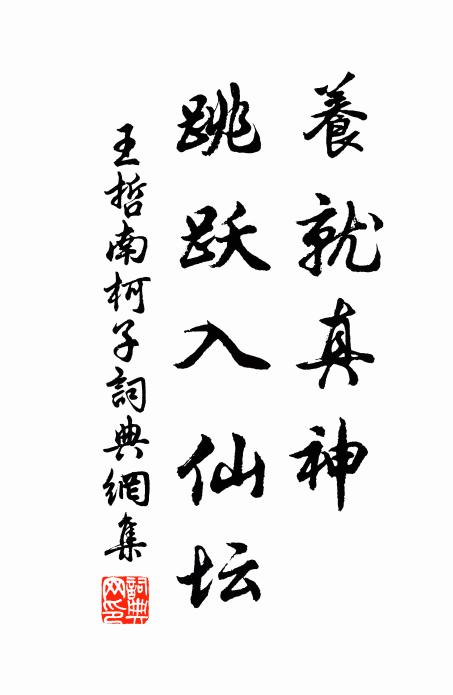 養就真神
跳跃入仙坛
王哲南柯子詞典網集
詞典网印